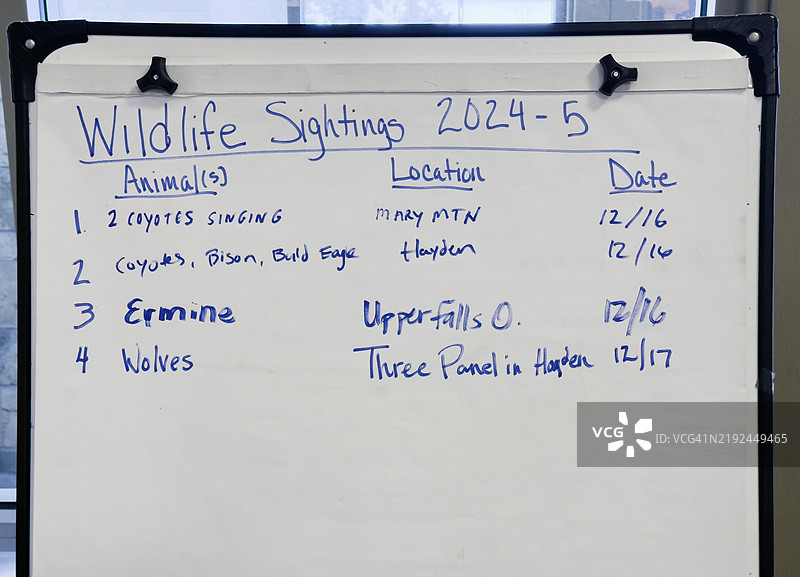 Wildlife Sightings 2024-5
Animal(s) Location Date
1. 2 COYOTES SINGING MARY MTN 12/16
2 Coyotes, Bison, Bald Eagle Hayden 12/16
3 Ermine Upper falls O. 12/16
4 Wolves Three Panel in Hayden 12/17
VCG ID: VCG41N2192449465